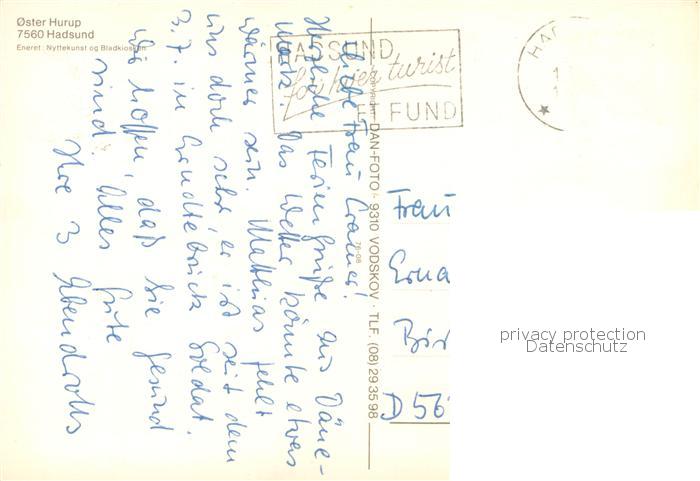 Øster Hurup
7560 Hadsund
Eneret: Nyttekunst og Bladkiosken
HADSUND
for hver turist
ET FUND
HAD
DAN-FOTO · 9310 VODSKOV · TLF. (08) 29 35 98
76-08
Liebe Frau Cramer!
Herzliche Feriengrüße aus Däne-
mark. Das Wetter könnte etwas
wärmer sein. Matthias fehlt
uns doch sehr, er ist seit dem
3.7. in Erndtebrück Soldat.
Wir hoffen, daß Sie gesund
sind. Alles Gute
Ihre 3 Abendroths
Frau
Erna
Bir
D 56
privacy protection
Datenschutz